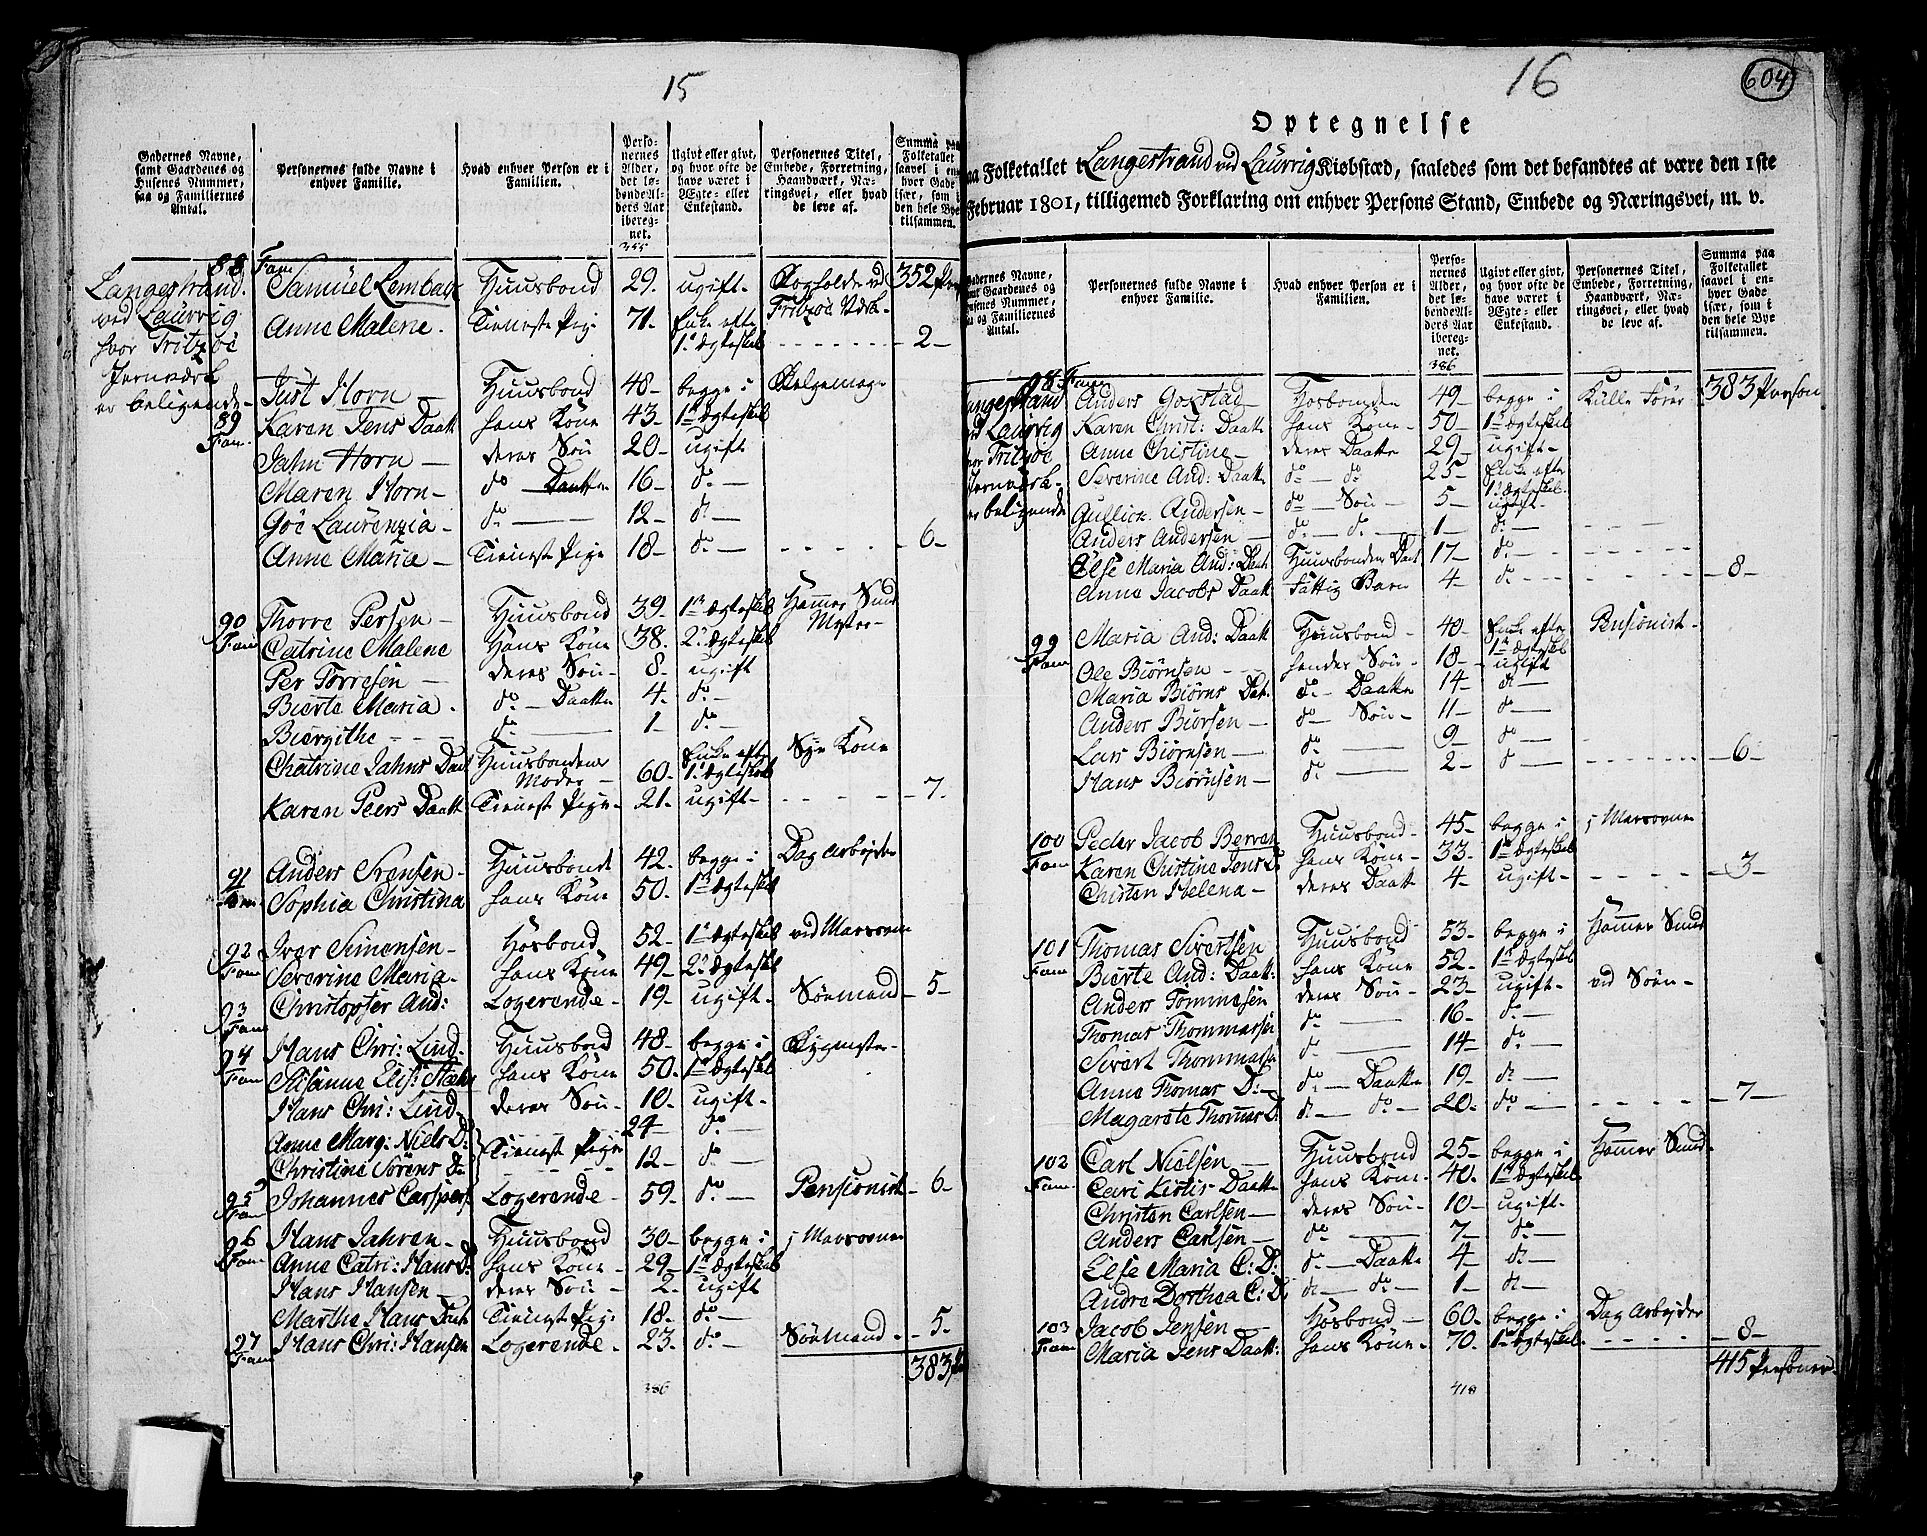 15
Gadernes Navne, samt Gaardenes og Husenes Nummer, saa og Familiernes Antal.
Personernes fulde Navne i enhver Familie.
Hvad enhver Person er i Familien.
Personernes Alder, det løbendeAlders Aar iberegnet.
Ugivt eller givt, og hvor ofte de have været i Ægte- eller Enkestand.
Personernes Titel, Embede, Forretning, Haandværk, Næringsvei, eller hvad de leve af.
Summa paa Folketallet saavel i enhver Gade især, som i den hele Bye tilsammen.
355
Langestrand ved Laurvig hvor Fritzøe Jernværk er beligende
88 Fam Samuel Lembach Huusbond 29. ugift. ved Fritzøe Værk 352
Anne Malene. Tieneste Pige 71. Enke efter 1te Ægteskab 2
89 Fam. Just Horn Huusbond 48 begge i
Karen Jens Daatter hans Kone 43 1te Ægteskab
Jahn Horn deres Søn 20 ugift
Maren Horn do Daatter 16 do
Laurenzia do 12 do
Anne Maria Tieneste Pige 18 do 6
90 Fam Thorre Persen Huusbond 39 1te Ægteskab Hammer Smed Mester
Catrine Malene Hans Kone 38. 2. Ægteskab
Per Torresen deres Søn 8 ugift
Bierte Maria. do Daatter 4. do
Biergithe do 1 do
Chatrine Jahns Daat Huusbondens Moder 60 Enke efter 1te Ægteskab Sye Kone
Karen Peers Daatter Tieneste Pige 21. ugift 7.
91 Fam Anders Srensen Huusbond 42. begge i Dag Arbeyder
Sophia Christina hans Kone 50. 1te Ægteskab
92 Fam Iver Simensen Hosbond 52 1te Ægteskab ved Marsovnen
Severine Maria hans Kone 49 2. Ægteskab
93 Fam Christopher And: Logerende 19 ugift Søemand 5
94 Fam Hans Chri: Lind Huusbond 48 begge i
Susanne Elis: hans Kone 50. 1te Ægteskab
Hans Chri: Lind deres Søn 10 ugift
Anne Marg: Niels D: Tieneste Pige 24 do
Christine Sørens D: 12 do
95 Fam Johannes Caspers Logerende 59 do Pensionist 6
96 Fam Hans Jahren Huusbond 30 begge i i Marsovnen
Anne Catri: Hans D: hans Kone 29 1te Ægteskab
Hans Hansen deres Søn 2 ugift
Marthe Hans Daat Tieneste Pige 18 do
97 Fam Hans Chri: Hansen Logerende 23 do Søemand 5
383
386
16
604
Optegnelse
paa Folketallet i Langestrand ved Laurvig Kiøbstæd, saaledes som det befandtes at være den 1ste
Februar 1801, tilligemed Forklaring om enhver Persons Stand, Embede og Næringsvei, m. v.
Gadernes Navne, samt Gaardenes og Husenes Nummer, saa og Familiernes Antal.
Personernes fulde Navne i enhver Familie.
Hvad enhver Person er i Familien.
Personernes Alder, det løbendeAlders Aar iberegnet.
Ugivt eller givt, og hvor ofte de have været i Ægte- eller Enkestand.
Personernes Titel, Embede, Forretning, Haandværk, Næringsvei, eller hvad de leve af.
Summa paa Folketallet saavel i enhver Gade især, som i den hele Bye tilsammen.
386
Langestrand ved Laurvig hvor Fritzøe Jernværk er beligende
98 Fam Anders Gokstad Hosbonden 49 begge i Kulle Fører 383 Person
Karen Christ: Daatter hans Kone 50 1te Ægteskab
Anne Chistine deres Daatter 29 ugift
Severine And: Daatter do do 25 Enke efter 1te Ægteskab
Gullick Andersen do Søn 5 ugift
Anders Andersen do do 1 do
Else Maria And: Daat Huusbondens Daat 17 do
Anne Jacobs Daatt fattig Barn 4 do 8
99 Fam Maria And: Daatt Huusbond 40 Enke efter 1te Ægteskab Pensionist
Ole Biørnsen hendes Søn 18 ugift
Maria Biørns Dat. do Daatter 14 do
Anders Biørsen do Søn 11 do
Lars Biørnsen do 9 do
Hans Biørnsen do 2 do 6
100 Fam Peder Jacob Huusbond 45 begge i i Marsovnen
Karen Christine Jens D: hans Kone 33 1te Ægteskab
Christen Helena deres Daatter 4 ugift 3
101 Fam Thomas Sivertsen Huusbond 53 begge i Hammer Smed
Bierte And: Daatt: hans Kone 52 1te Ægteskab
Anders Tommesen deres Søn 23 ugift ved Søen
Thomas Thommassen do 16 do
Sivert Thommassen do 14 do
Anne Thomas D: do Daatter 19 do
Magarete Thomas D: do do 20 do 7
102 Fam Carl Nielsen Huusbond 25 begge i Hammer Smed
Cari Kistis Daatt: hans Kone 40 1te Ægteskab
Christen Carlsen deres Søn 10 ugift
Anders Carlsen do 7 do
Else Maria C: D: do Daatter 4 do
Andre Dorthea C: D: do do 1 do
103 Fam Jacob Jensen Hosbond 60 begge i Dag Arbeyder
Maria Jens Daatt: hans Kone 70 1te Ægteskab 8
415 Personer
418